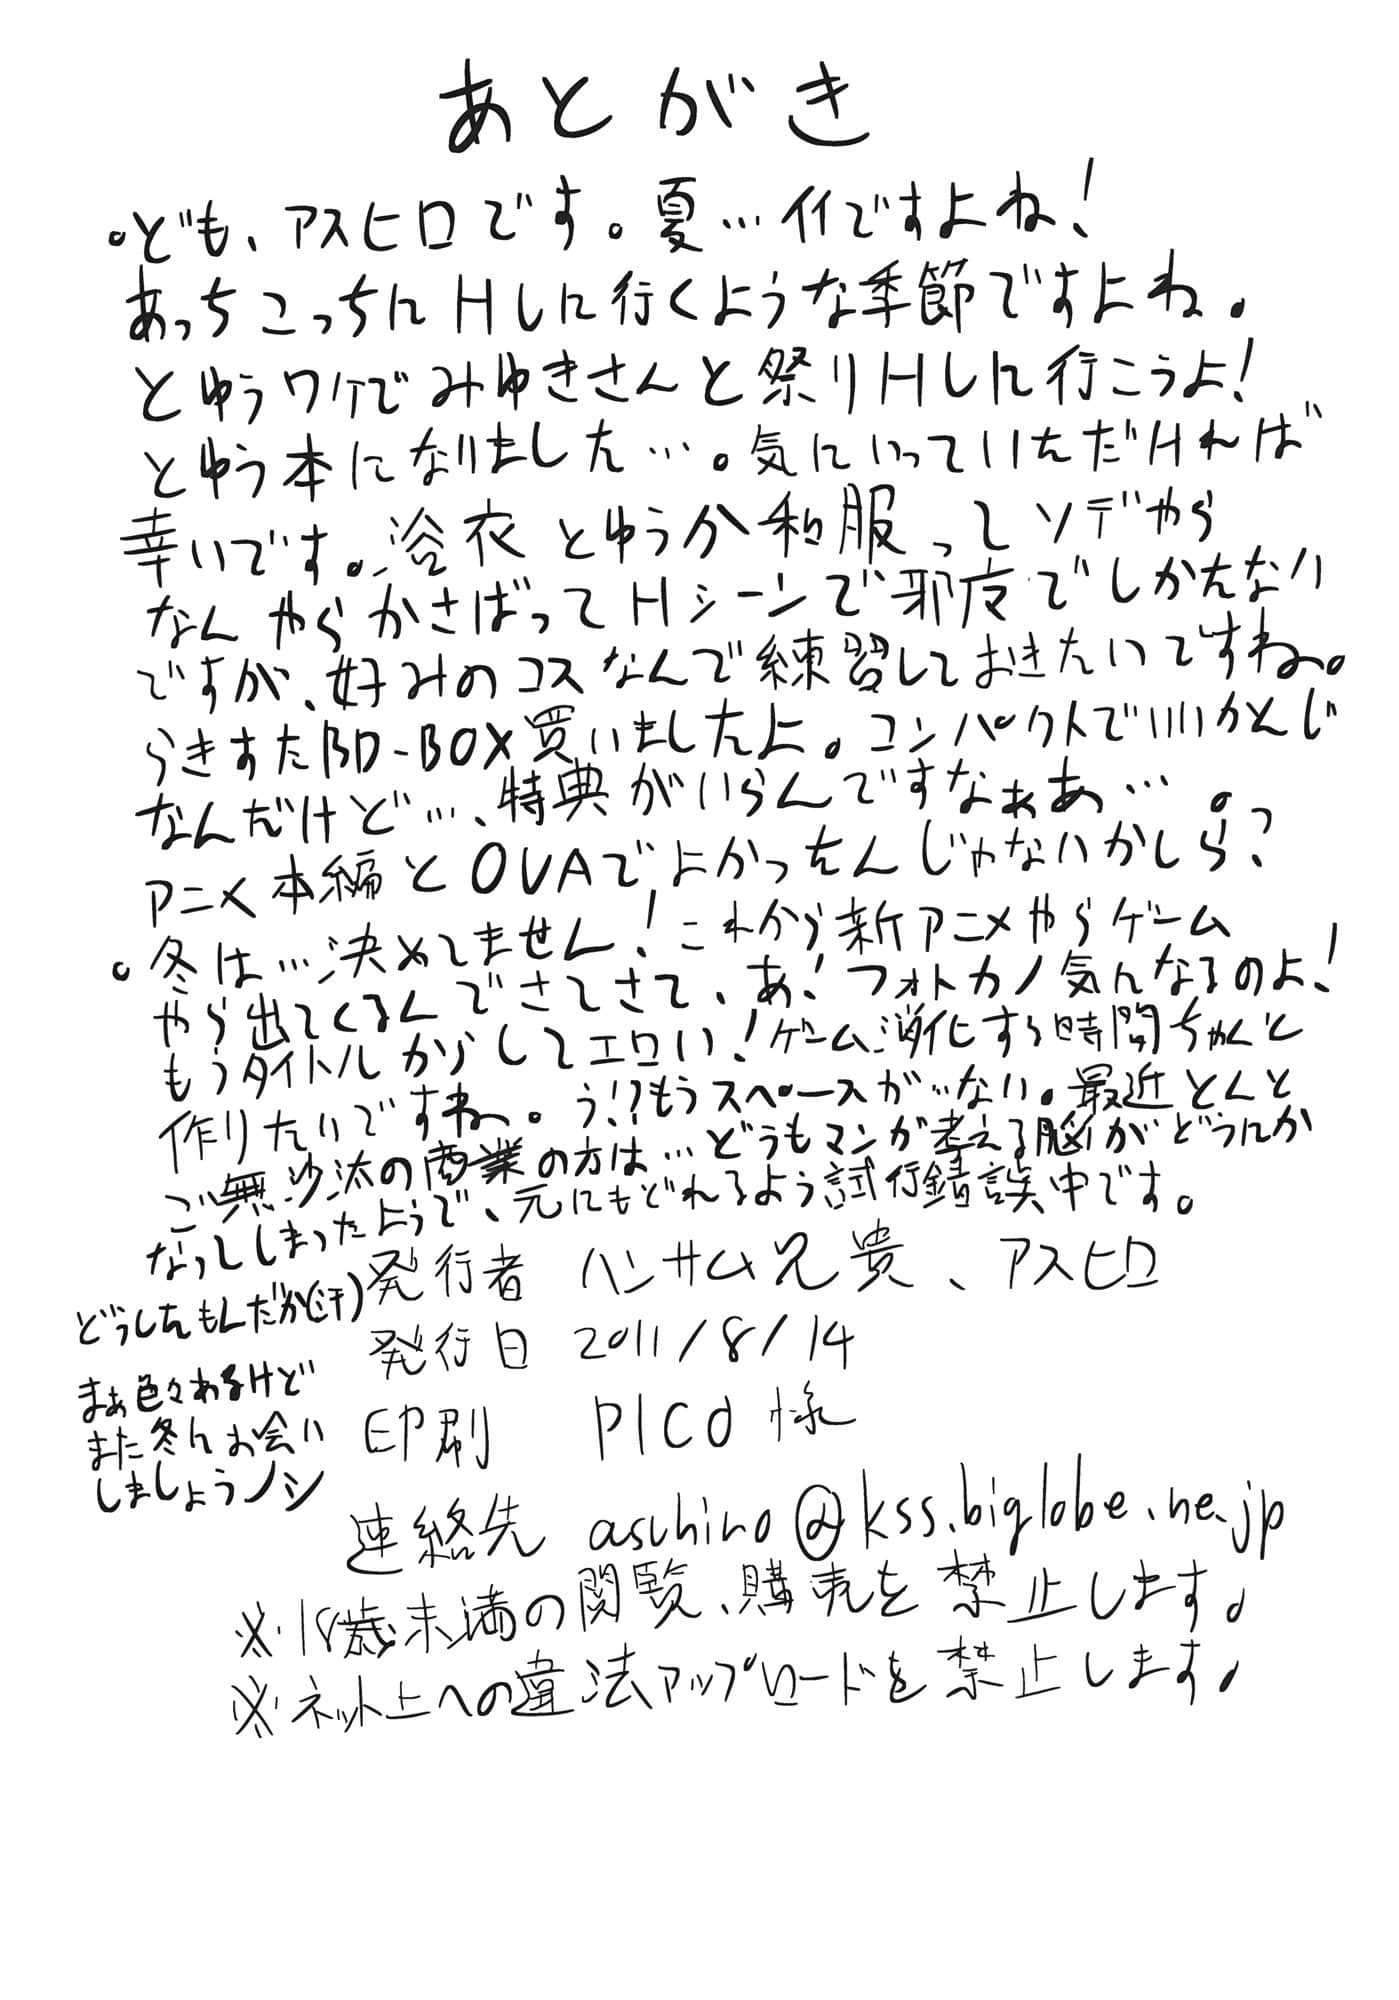 あとがき
。ども、アスヒロです。夏…イイですよね!
あっちこっちにHしに行くような季節ですよね。
とゆうワケでみゆきさんと祭りHしに行こうよ!
とゆう本になりました…。気にいっていただければ
幸いです。浴衣とゆうか和服ってソデやら
なんやらかさばってHシーンで邪魔でしかたない
ですが、好みのコスなんで練習しておきたいですね。
らきすたBD-BOX買いましたよ。コンパクトでいいかんじ
なんだけど…、特典がいらんですなぁあ…。
アニメ本編とOVAでよかったんじゃないかしら?
。冬は…決めてません!これから新アニメやらゲーム
やら出てくるんでさてさて、あ!フォトカノ気んなるのよ!
もうタイトルからしてエロい!ゲーム消化する時間ちゃんと
作りたいですねー。う!?もうスペースが…ない。最近とんと
ご無沙汰の商業の方は…どうもマンが考える脳がどうにか
なってしまったようで、元にもどれるよう試行錯誤中です。
どうしたもんだか(汗)
まぁ色々あるけど
また冬にお会い
しましょうノシ
発行者 ハンサム兄貴、アスヒロ
発行日 2011/8/14
印刷 PICO様
連絡先 asuhiro@kss.biglobe.ne.jp
※18歳未満の閲覧、購売を禁止します。
※ネット上への違法アップロードを禁止します。